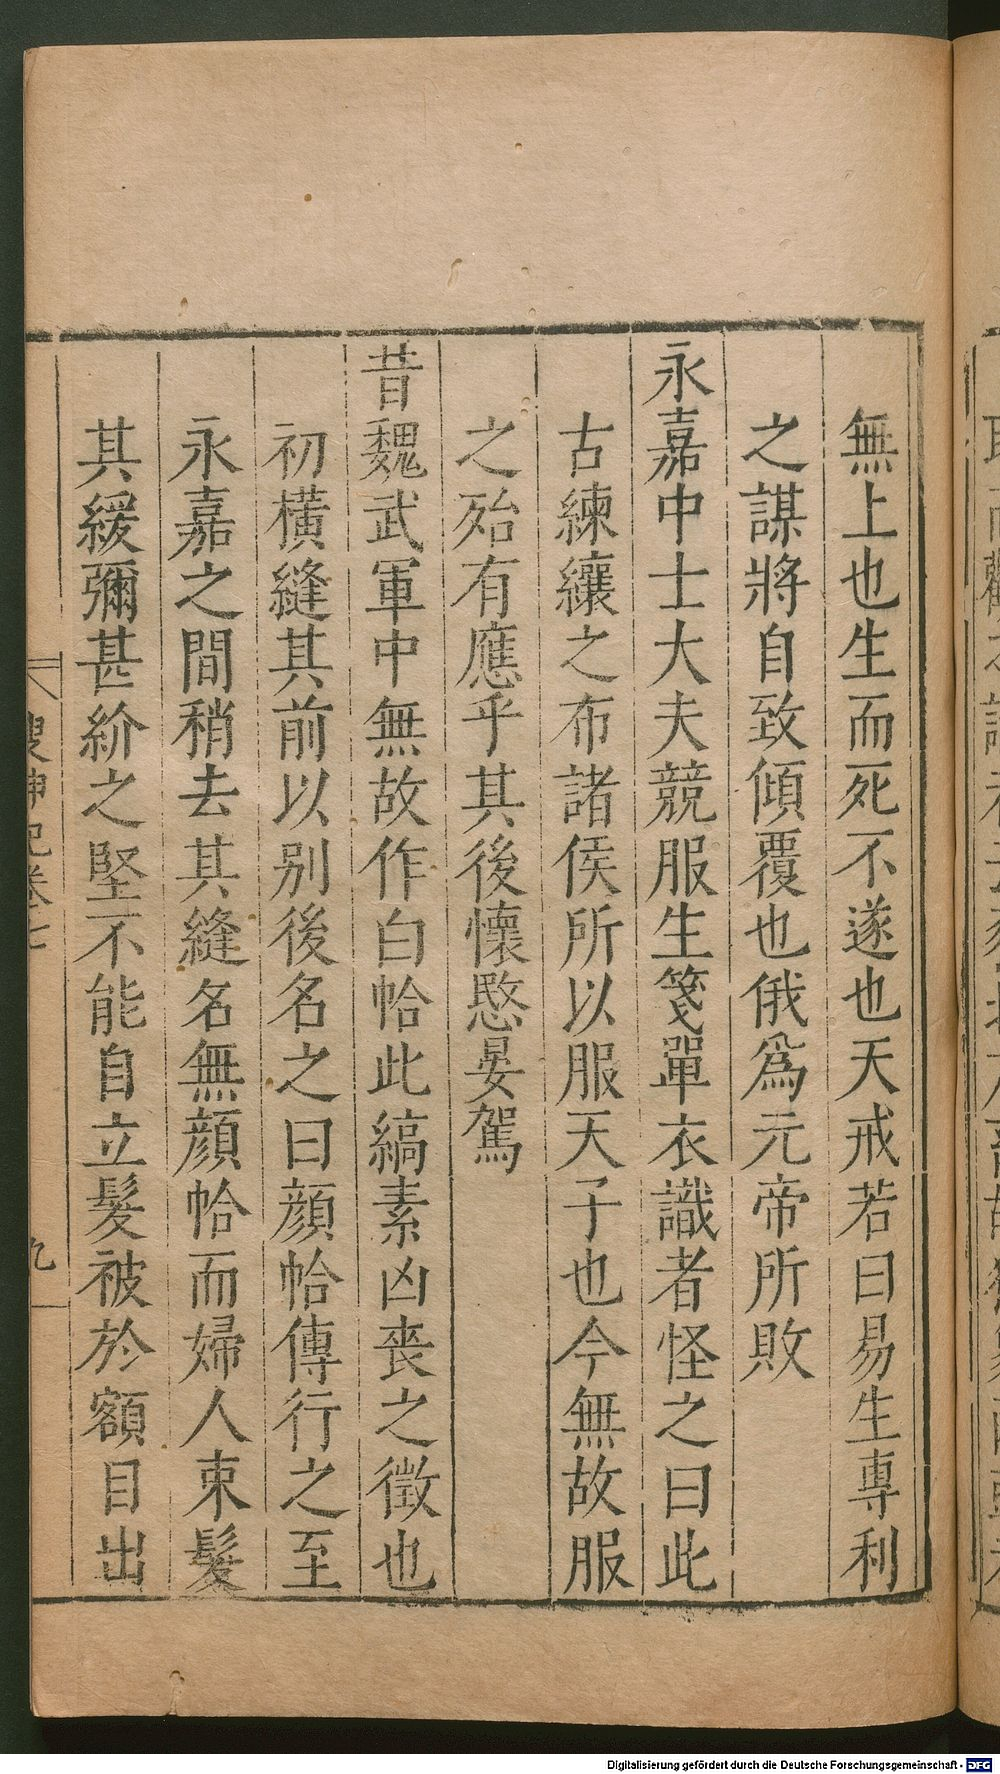 無上也生而死不遂也天戒若曰易生專利
之謀將自致傾覆也俄爲元帝所敗
永嘉中士大夫競服生箋單衣識者怪之曰此
古練纕之布諸侯所以服天子也今無故服
之殆有應乎其後懷愍晏駕
昔魏武軍中無故作白帢此縞素凶喪之徵也
初橫縫其前以別後名之曰顏帢傳行之至
永嘉之間稍去其縫名無顏帢而婦人束髮
其緩彌甚紒之堅不能自立髮被於額目出
搜神記卷七
九
Digitalisierung gefördert durch die Deutsche Forschungsgemeinschaft - DFG